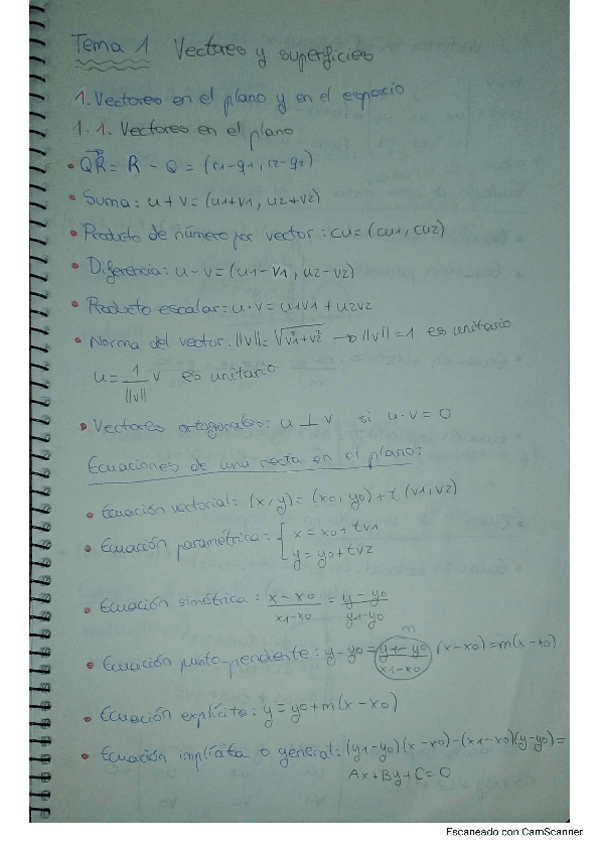 Tema 1 Vectores y superficies
1. Vectores en el plano y en el espacio
1.1. Vectores en el plano
• QR = R - Q = (r1-q1, r2-q2)
• Suma: u+v=(u1+v1, u2+v2)
• Producto de número por vector: cu=(cu1, cu2)
• Diferencia: u-v=(u1-v1, u2-v2)
• Producto escalar: u·v=u1v1+u2v2
• Norma del vector: ||v||=√(v1²+v2²) → ||v||=1 es unitario
u=1/||v|| v es unitario
• Vectores ortogonales: u ⊥ v si u·v=0
Ecuaciones de una recta en el plano:
• Ecuación vectorial: (x,y)=(x0,y0)+t(v1,v2)
• Ecuación paramétrica: { x=x0+tv1
y=y0+tv2
• Ecuación simétrica: x-x0/x1-x0 = y-y0/y1-y0
m
• Ecuación punto-pendiente: y-y0=y1-y0/x1-x0 (x-x0)=m(x-x0)
• Ecuación explícita: y=y0+m(x-x0)
• Ecuación implícita o general: (y1-y0)(x-x0)-(x1-x0)(y-y0)=
Ax+By+C=0
Escaneado con CamScanner